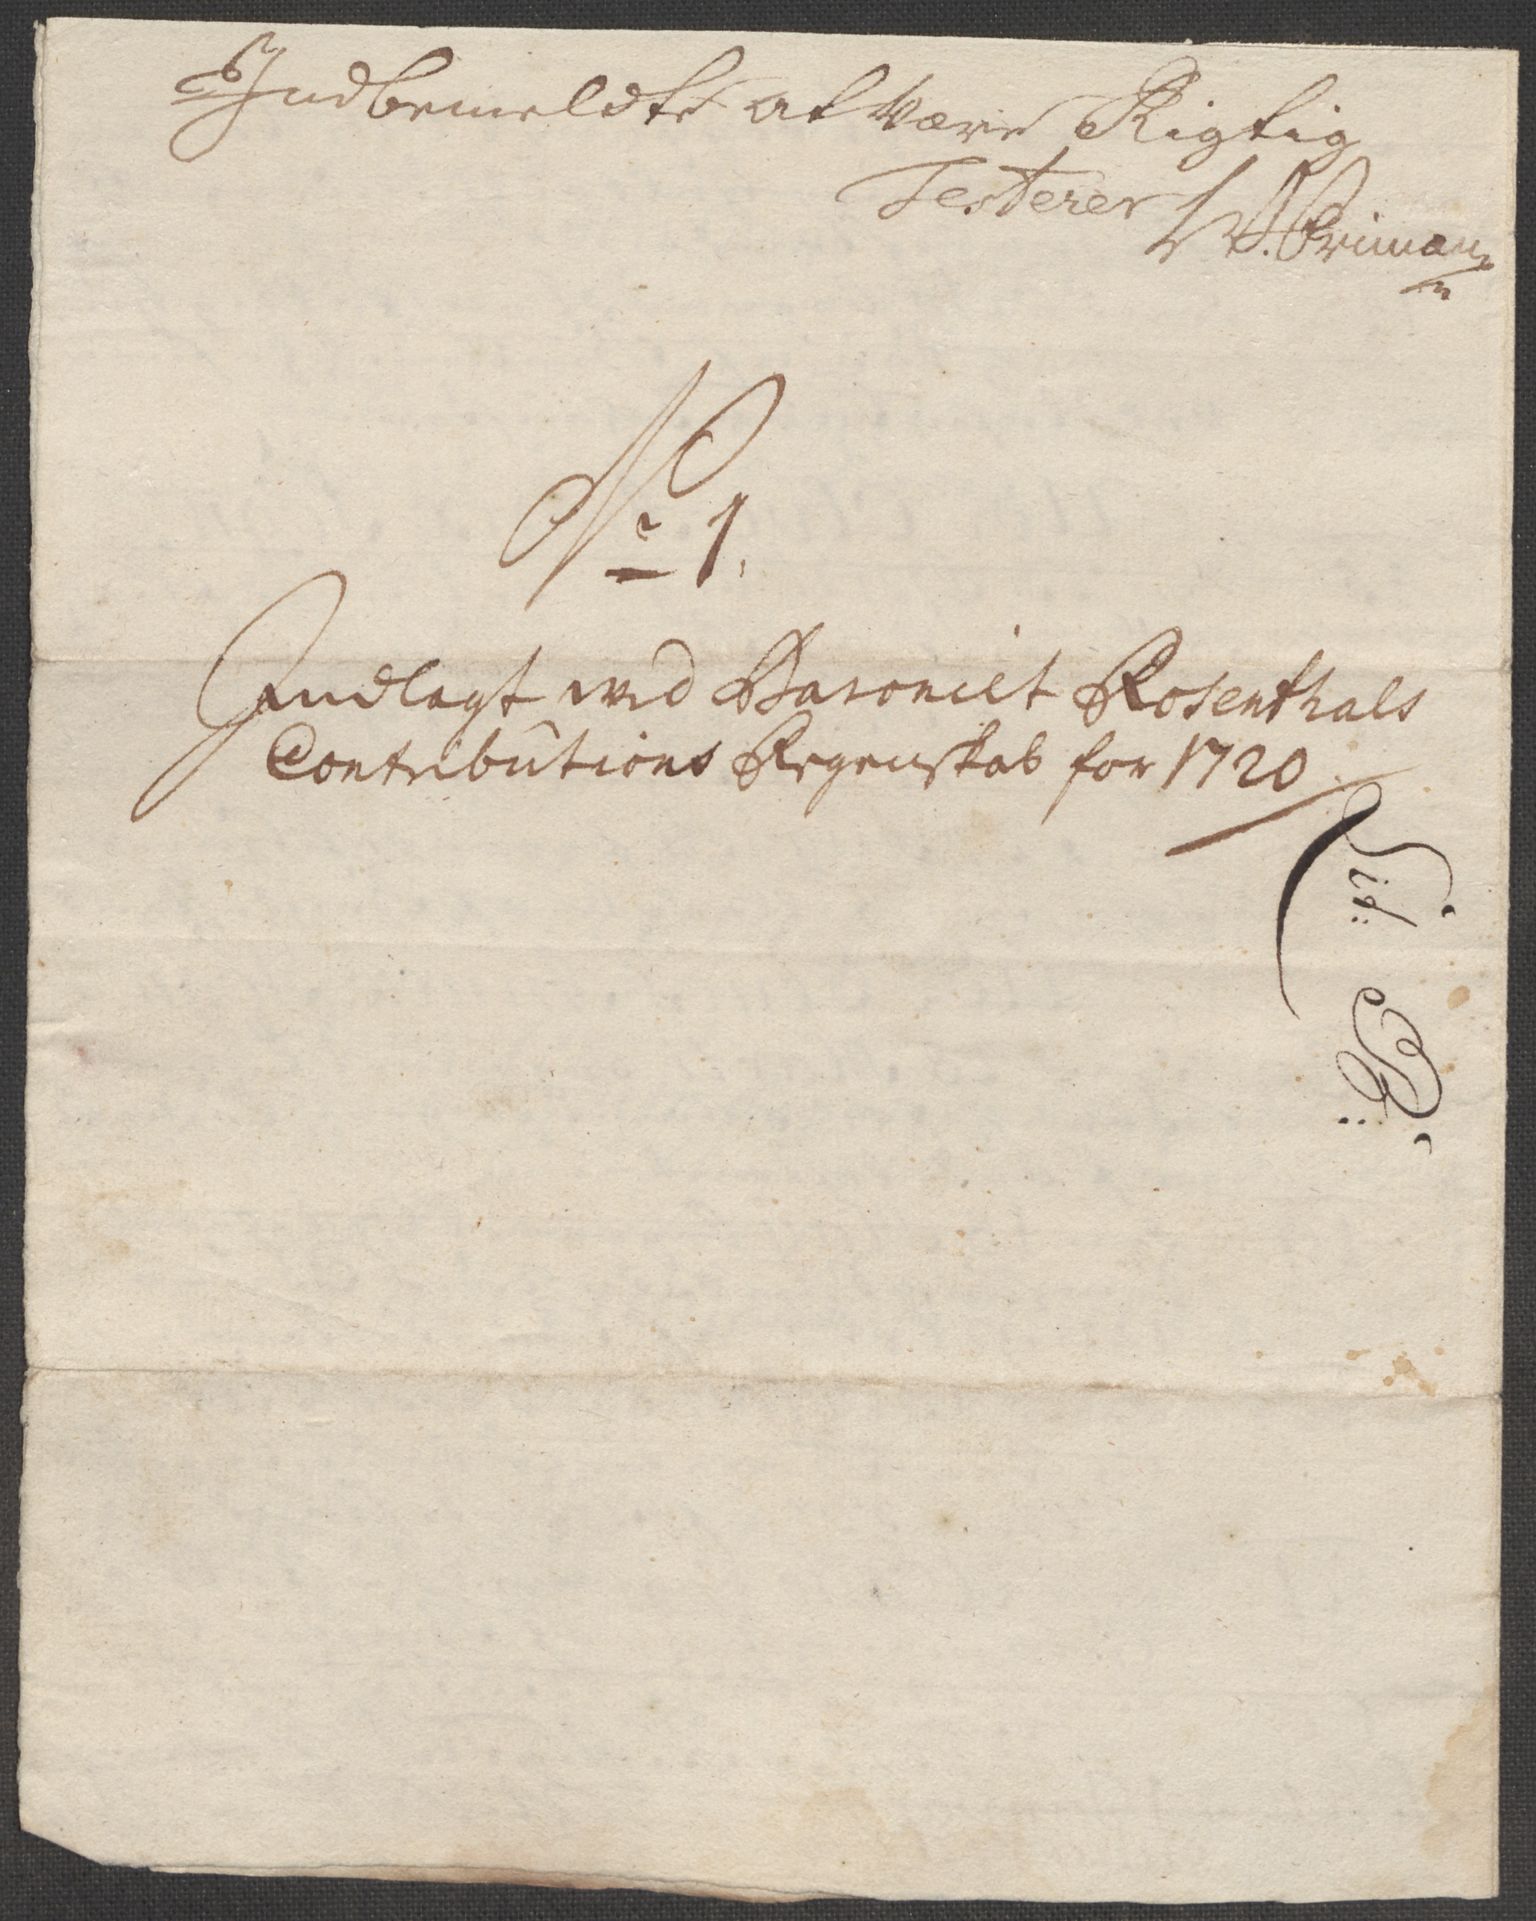 Indbemeldte at Være Rigtig
Testerer
No 1.
Indlagt wed Baroniet Rosenthals
Contributions Regenskab for 1720
Lit: B: